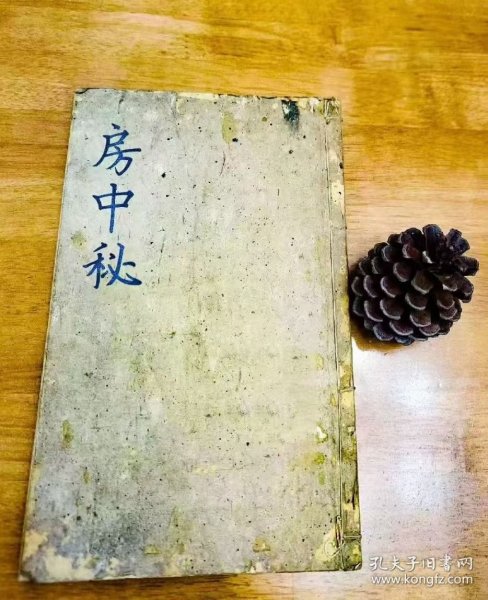 房中秘
孔夫子旧书网
www.kongfz.com